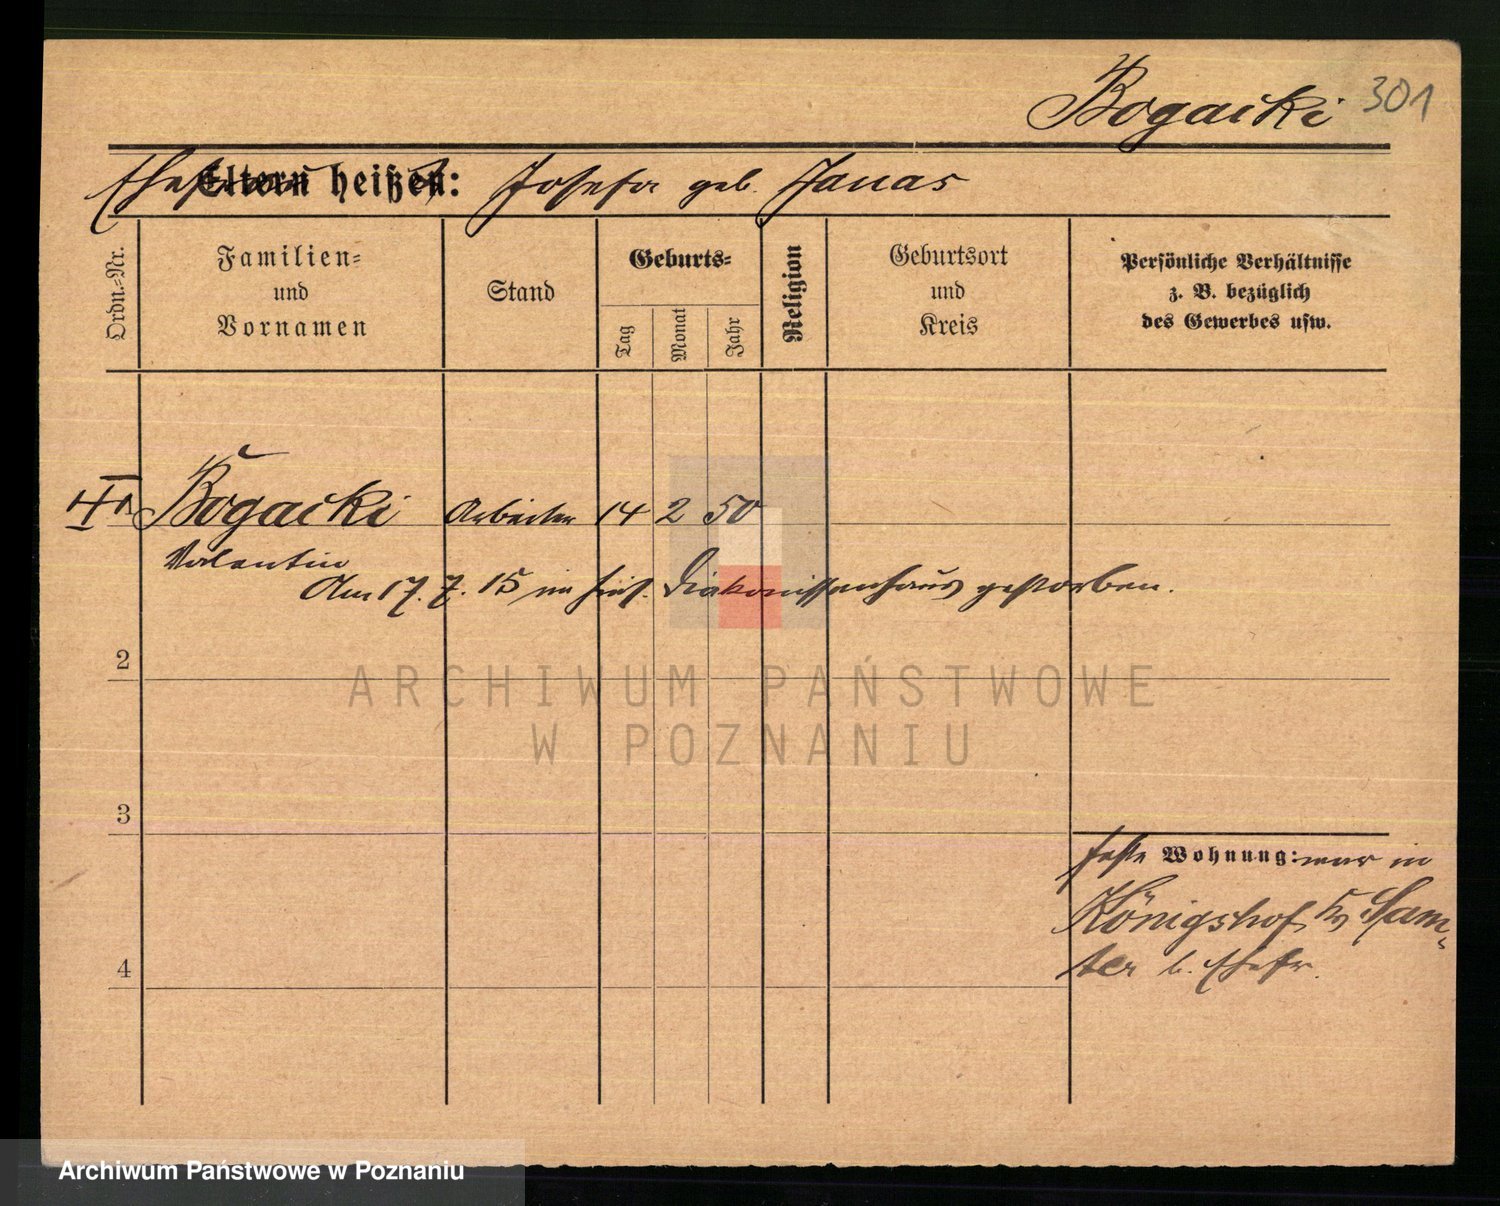 Bogacki 301
Ehefrau Eltern heißen: Josefa geb. Janas
Ordn.-Nr.
Familien-
und
Vornamen
Stand
Geburts-
Tag
Monat
Jahr
Religion
Geburtsort
und
Kreis
Persönliche Verhältnisse
z. B. bezüglich
des Gewerbes usw.
Bogacki Arbeiter 14 2 50
Valentin
Am 17. 7. 15 im hies. Diakonissenhaus gestorben.
2
3
4
feste Wohnung: war in
Königshof Kr Sam-
ter b. Ehefr.
ARCHIWUM PAŃSTWOWE
W POZNANIU
Archiwum Państwowe w Poznaniu